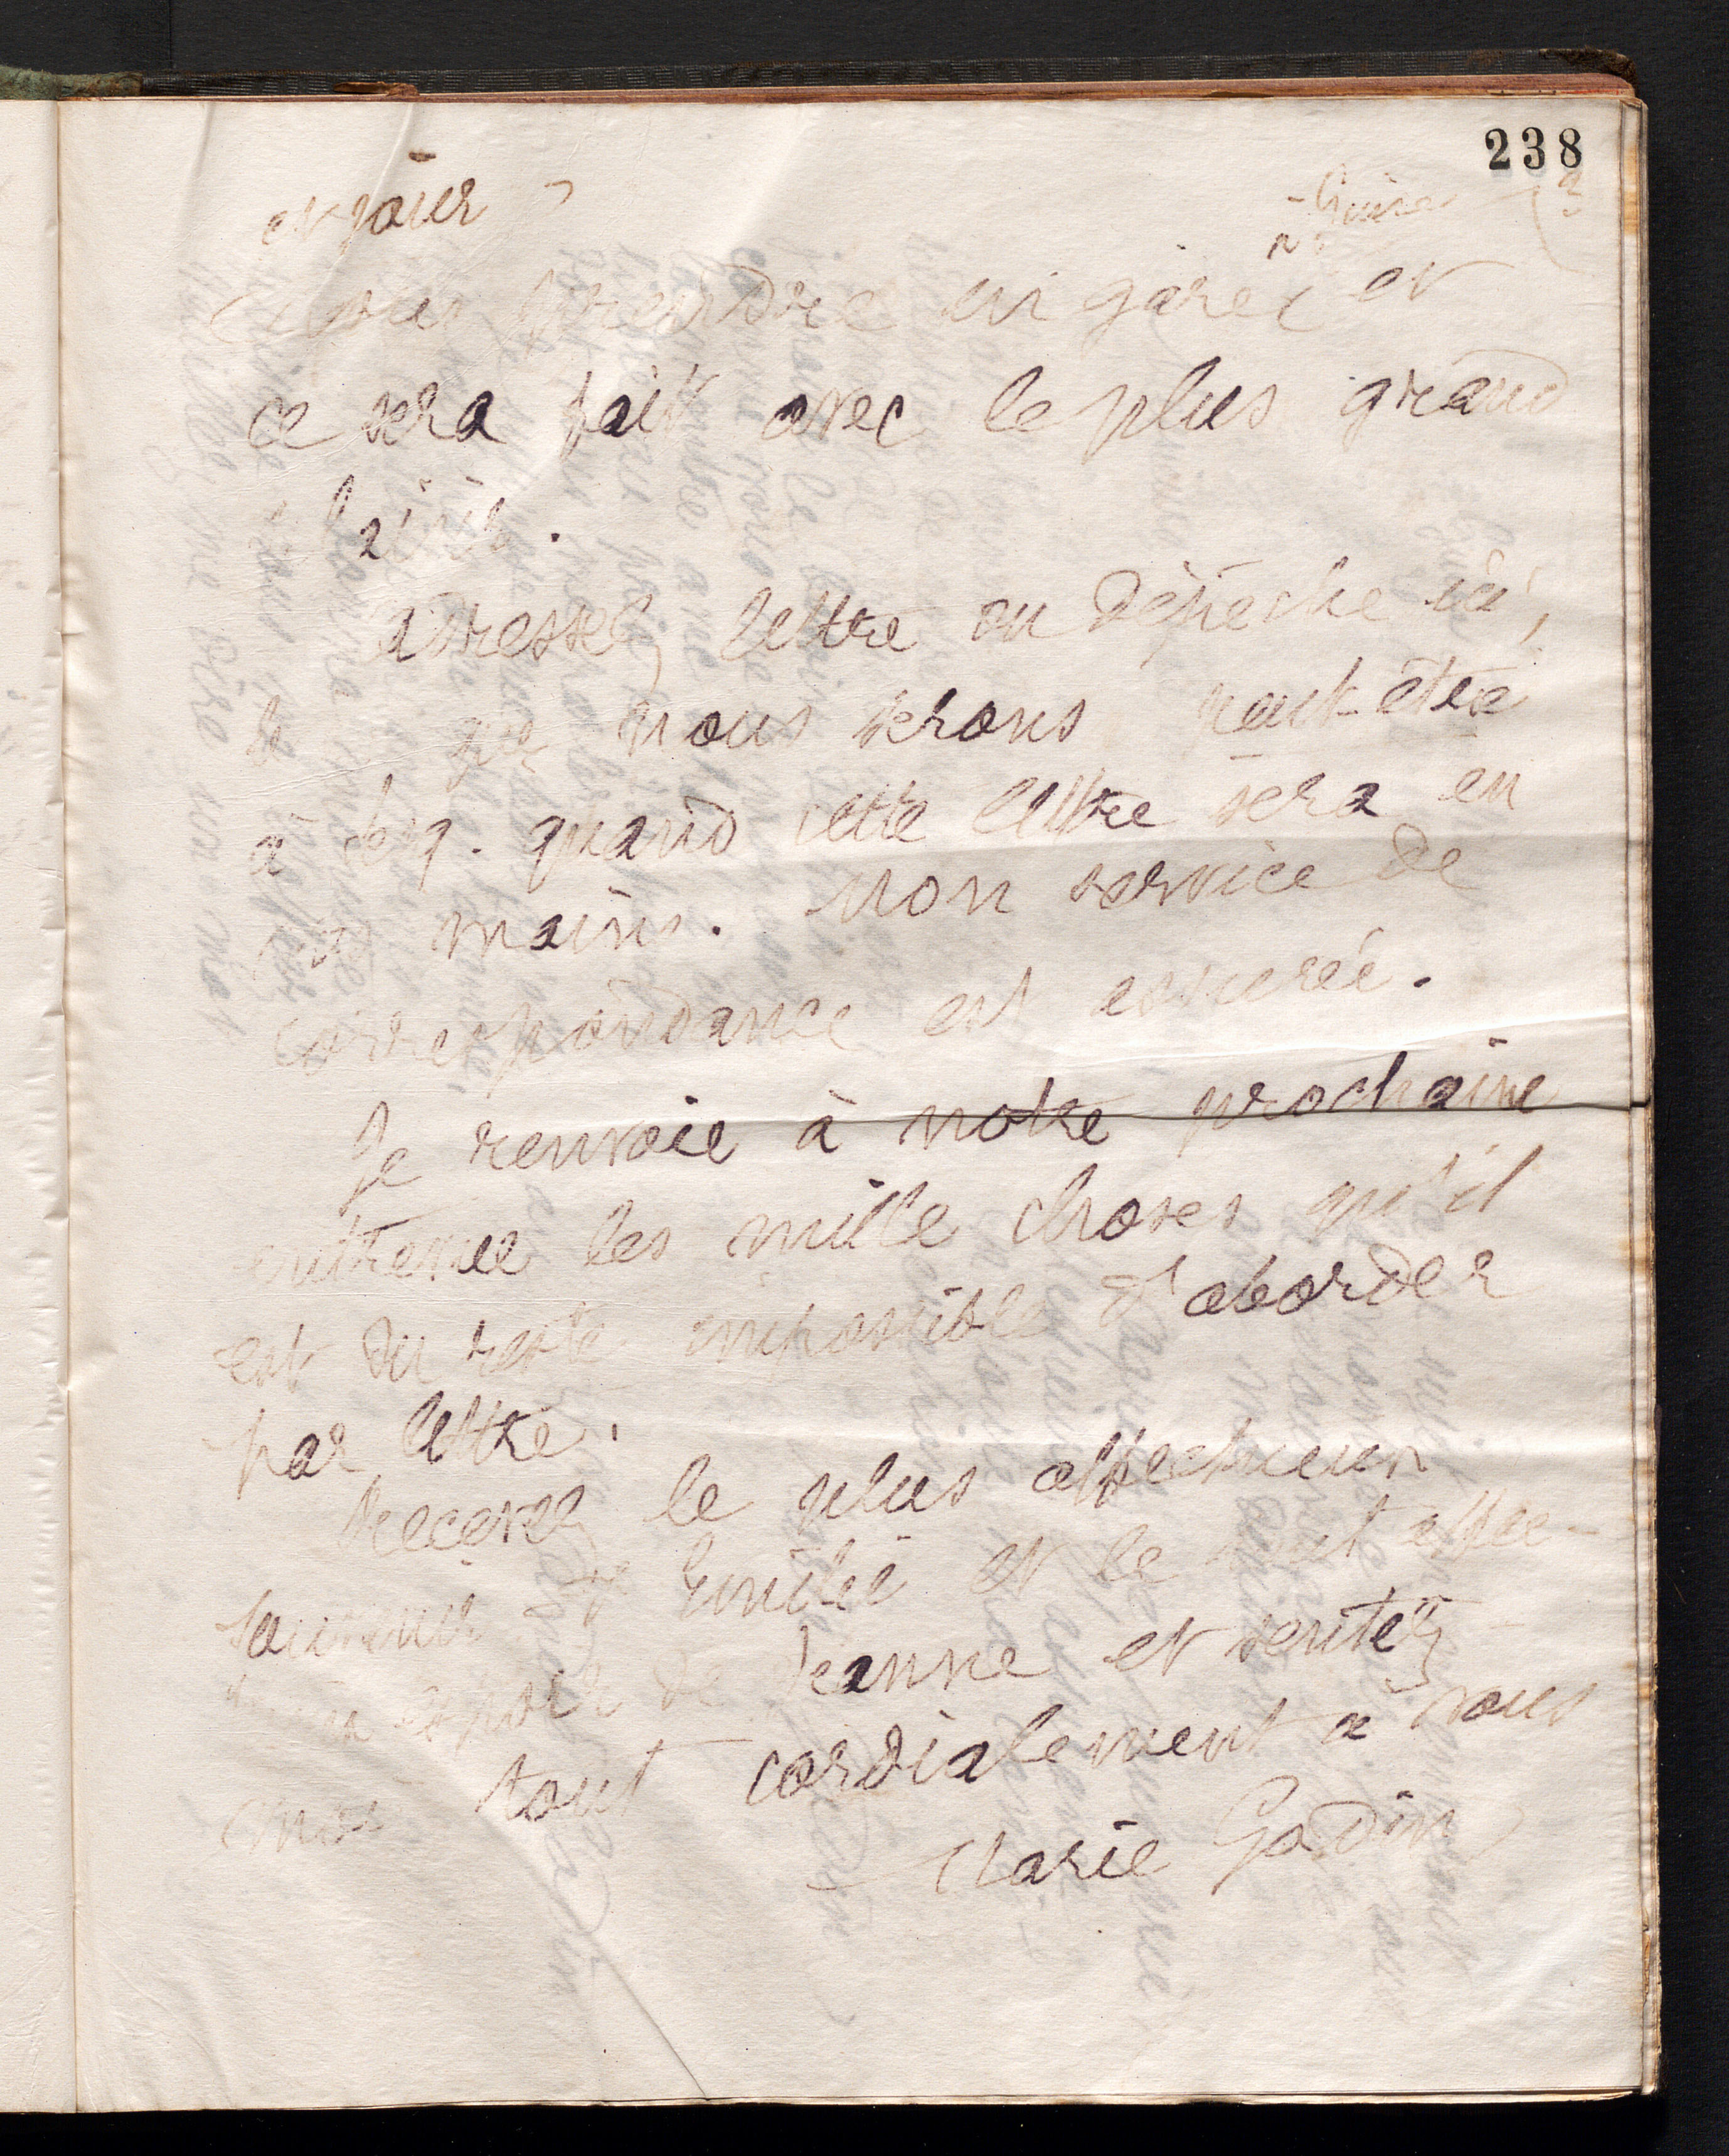 238
et pour
à Guise
pour prendre en gare, et
ce sera fait avec le plus grand
plaisir.
adressez lettre ou dépêche ici,
nous serons peut-être
à Lesq. quand cette lettre sera en
vos mains. Mon service de
correspondance est assurée.
Je renvoie à notre prochaine
entrevue les mille choses qu'il
est du reste impossible d'aborder
par lettre.
Recevez le plus affectueux
souvenir de Emilie et le tout affec-
de Jeanne et sentez-
moi tout cordialement à vous
Marie Godin